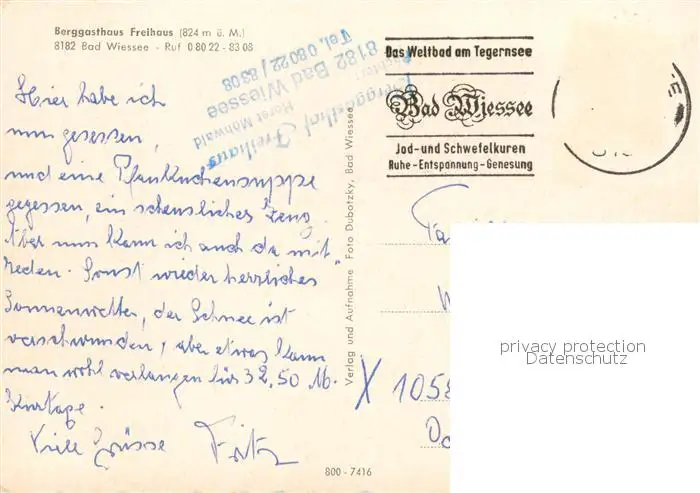 Berggasthaus Freihaus (824 m ü. M.)
8182 Bad Wiessee - Ruf 0 80 22 - 83 08
Berggasthof Freihaus
Horst Mohwald
8182 Bad Wiessee
Tel. 08022/8308
Das Weltbad am Tegernsee
Bad Wiessee
Jod- und Schwefelkuren
Ruhe - Entspannung - Genesung
Hier habe ich
nun gesessen,
und eine Pfankuchensuppe
gegessen, ein scheusliches Zeug.
Aber nun kann ich auch da mit
reden. Sonst wieder herrliches
Sonnenwetter, der Schnee ist
verschwunden, aber etwas kann
man wohl verlangen für 32.50 M.
Kurtaxe.
Viele Grüsse Fritz
Verlag und Aufnahme Foto Dubotzky, Bad Wiessee
X 1058
800 - 7416
privacy protection
Datenschutz